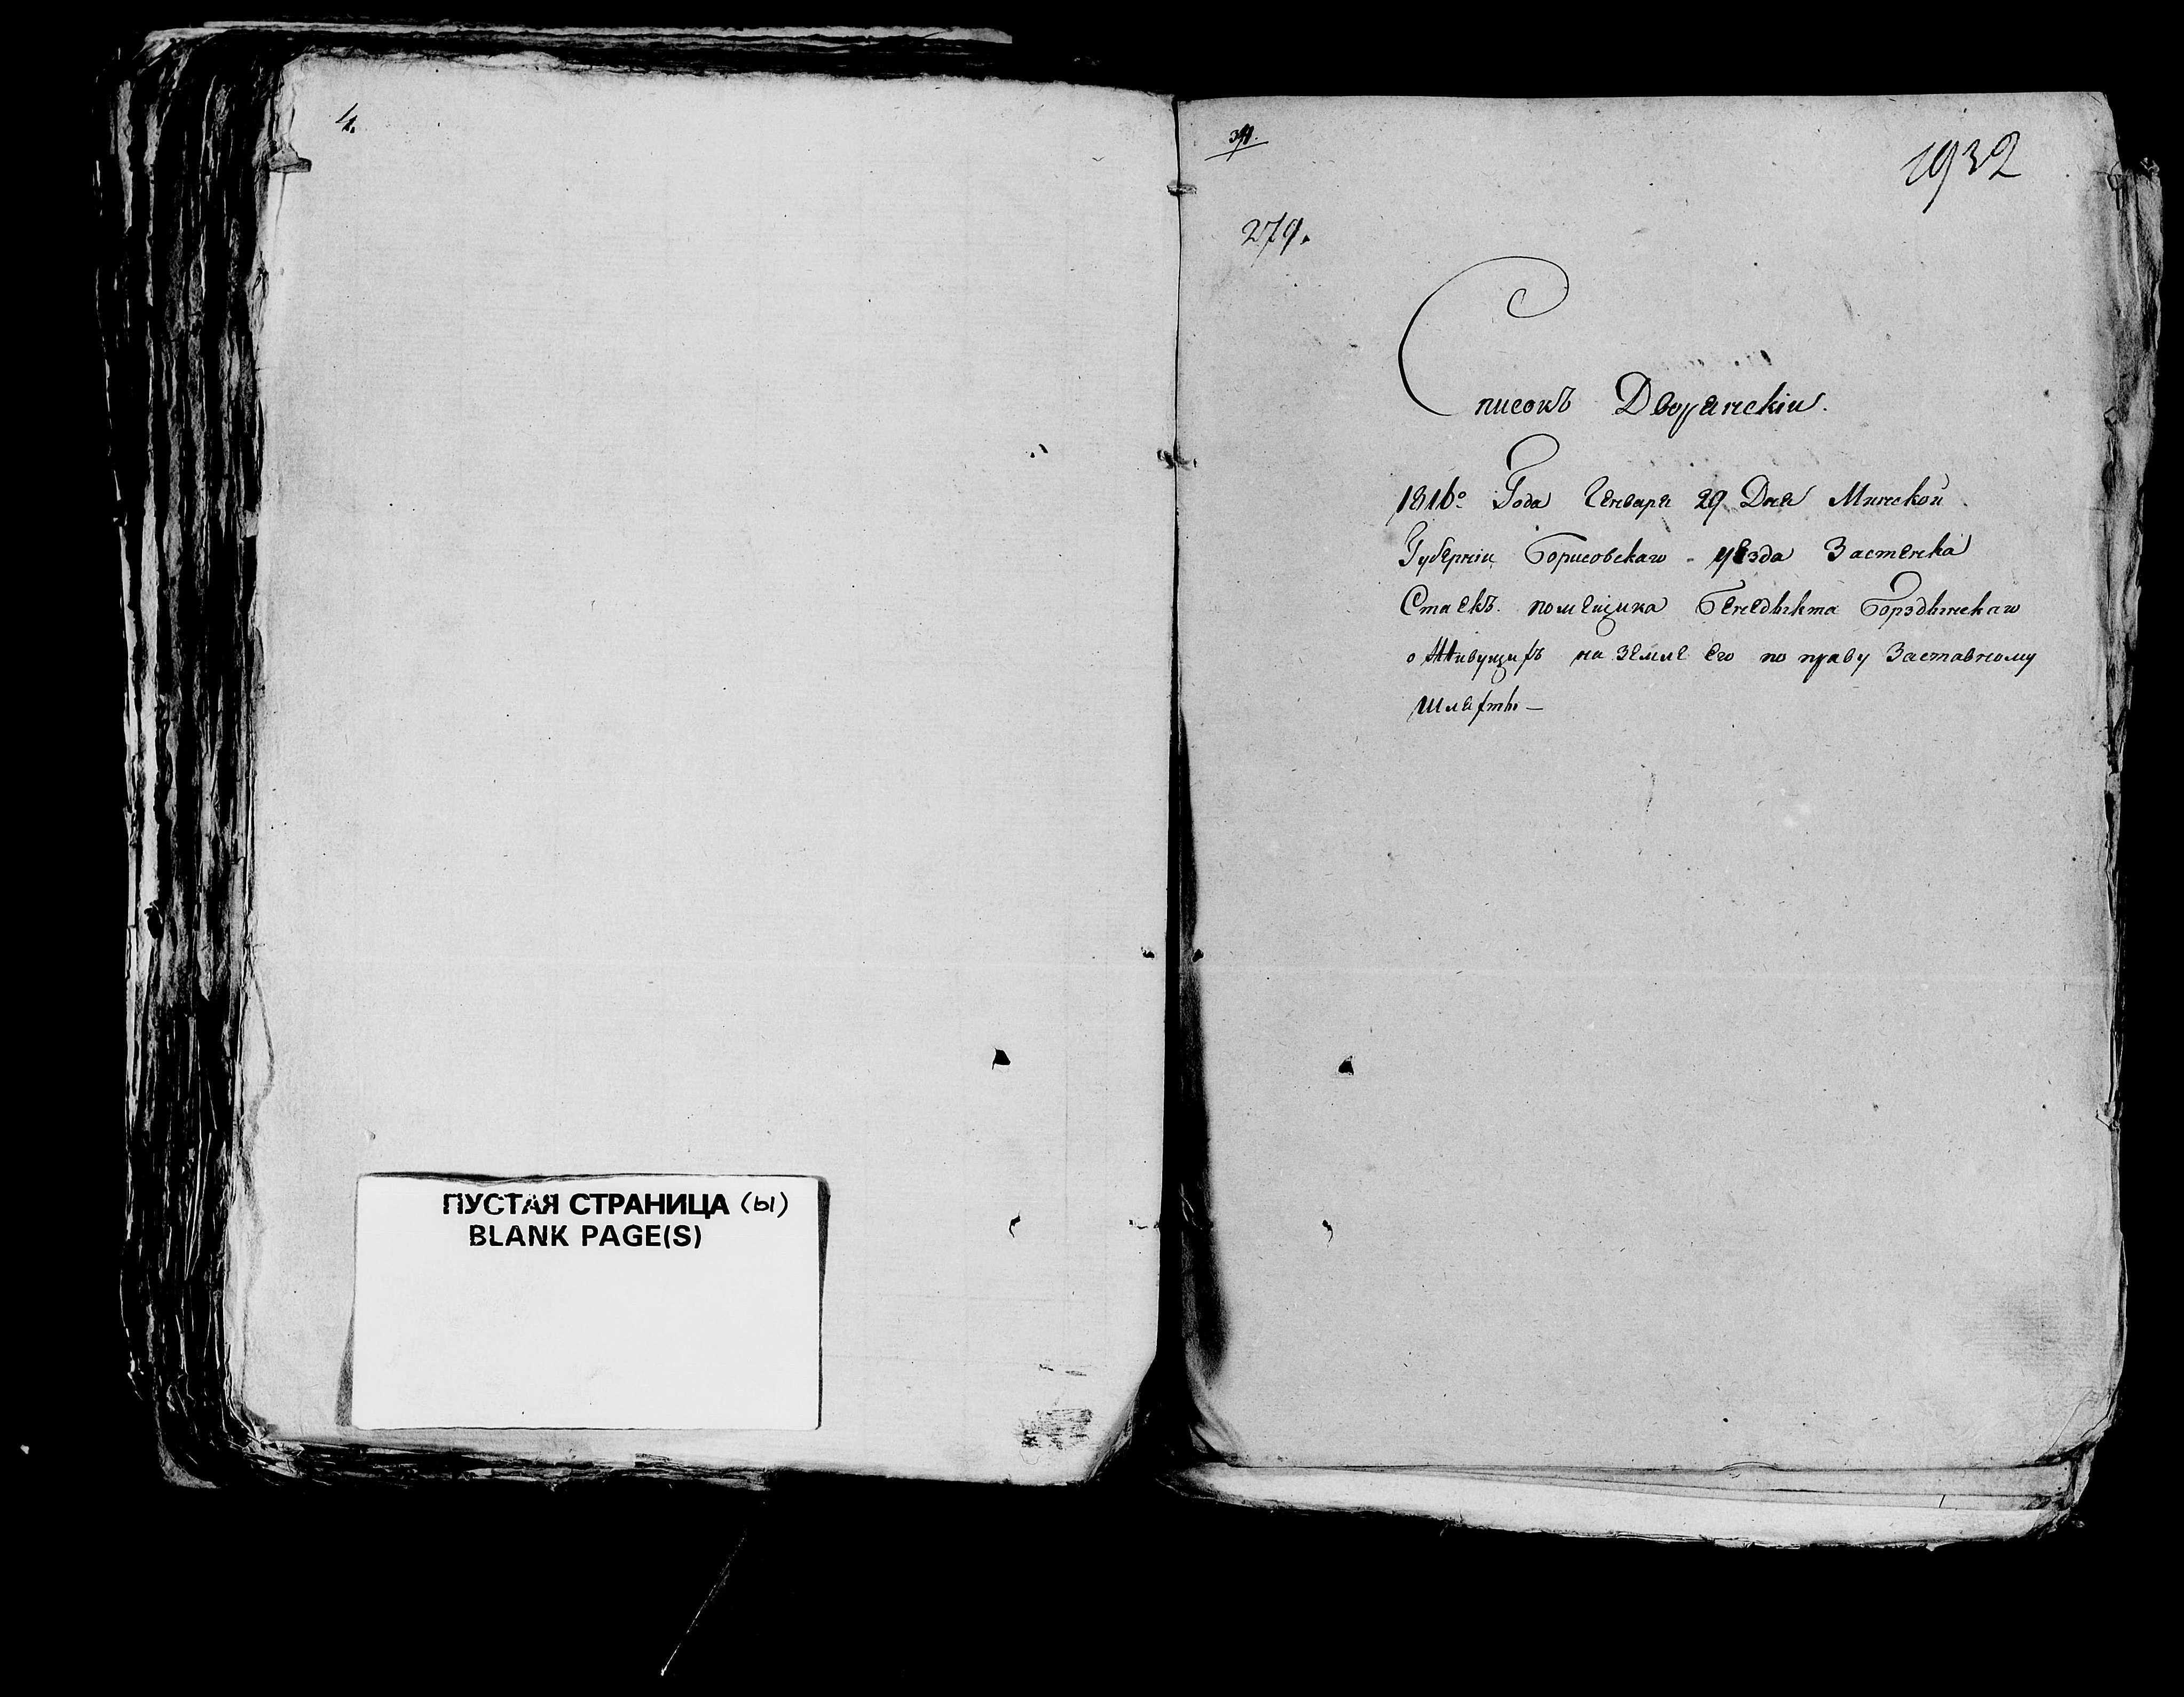 4.
1932
279.
Списокъ Дворянскіи.
1816º Года Генваря 29 Дня Минской
Губерніи Борисовскаго уезда Застенка
Стаекъ помещика Бенедыкта Борздынскаго
о Живущихъ на Земле Его по праву Заставному
Шляхты —
ПУСТАЯ СТРАНИЦА (ы)
BLANK PAGE(S)